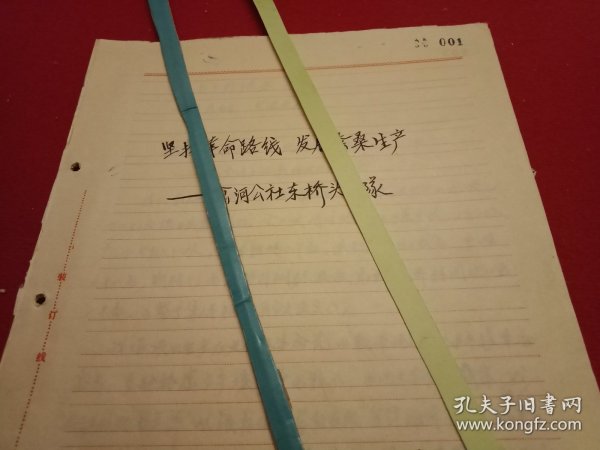 001
坚 革命路线 发 桑生产
——河公社东桥头 隊
装订线
孔夫子旧书网
www.kongfz.com